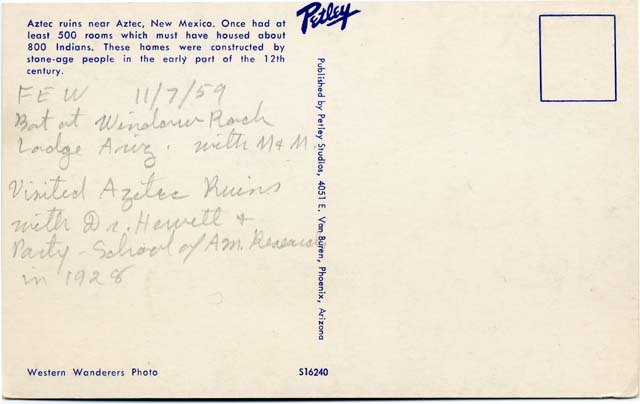 Aztec ruins near Aztec, New Mexico. Once had at
least 500 rooms which must have housed about
800 Indians. These homes were constructed by
stone-age people in the early part of the 12th
century.
Petley
FEW 11/7/59
at Window Rock
Lodge Ariz. with M & M.
Visited Aztec Ruins
with Dr. Hewett &
Party - School of Am. Research
in 1928
Published by Petley Studios, 4051 E. Van Buren, Phoenix, Arizona
Western Wanderers Photo
S16240